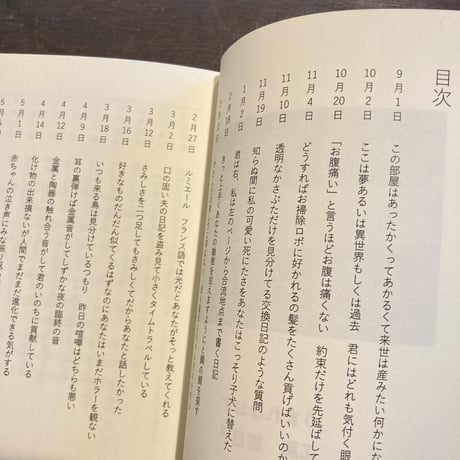 目次
9月1日 この部屋はあったかくってあかるくて来世は産みたい何かにな
10月2日 ここは夢あるいは異世界もしくは過去 君にはどれも気付く眼
10月20日 「お腹痛い」と言うほどお腹は痛くない 約束だけを先延ばして
11月4日 どうすればお掃除ロボに好かれるの髪をたくさん貢げばいいのか
11月10日 透明なかさぶただけを見分けてる交換日記のような質問
11月19日 知らぬ間に私の可愛い死にたさをあなたはこっそり子犬に替えた
1月2日 君は右、私は左のページから合流地点まで書く日記
2月18日
2月27日 ルミエール フランス語では光だとあなたがそっと教えてくれる
3月2日 口の固い夫の日記を盗み見て小さくタイムトラベルしている
3月12日 さみしさを二つ足してもさみしくてだからあなたと話したかった
3月16日 好きなものだんだん似てくるはずなのにあなたはいまだホラーを観ない
3月18日 いつも来る鳥は見分けているつもり 昨日の喧嘩はどちらも悪い
4月9日 耳の裏弾けば金属音がしてしずかな夜の臨終の音
4月14日 金属と陶器の触れ合う音がして君のいのちに貢献している
化け物の出来損ないが人間でまだまだ進化できる気がする
赤ちゃんの泣き声にみな振り返